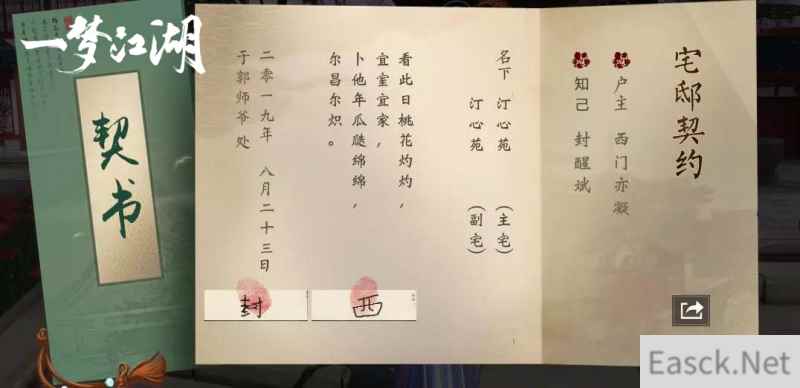 一梦江湖
契书
宅邸契约
户主 西门亦凝
知己 封醒斌
名下 汀心苑 （主宅）
汀心苑 （副宅）
看此日桃花灼灼，
宜室宜家，
卜他年瓜瓞绵绵，
尔昌尔炽。
二零一九年 八月二十三日
于郭师爷处
封
西
Easck.Net